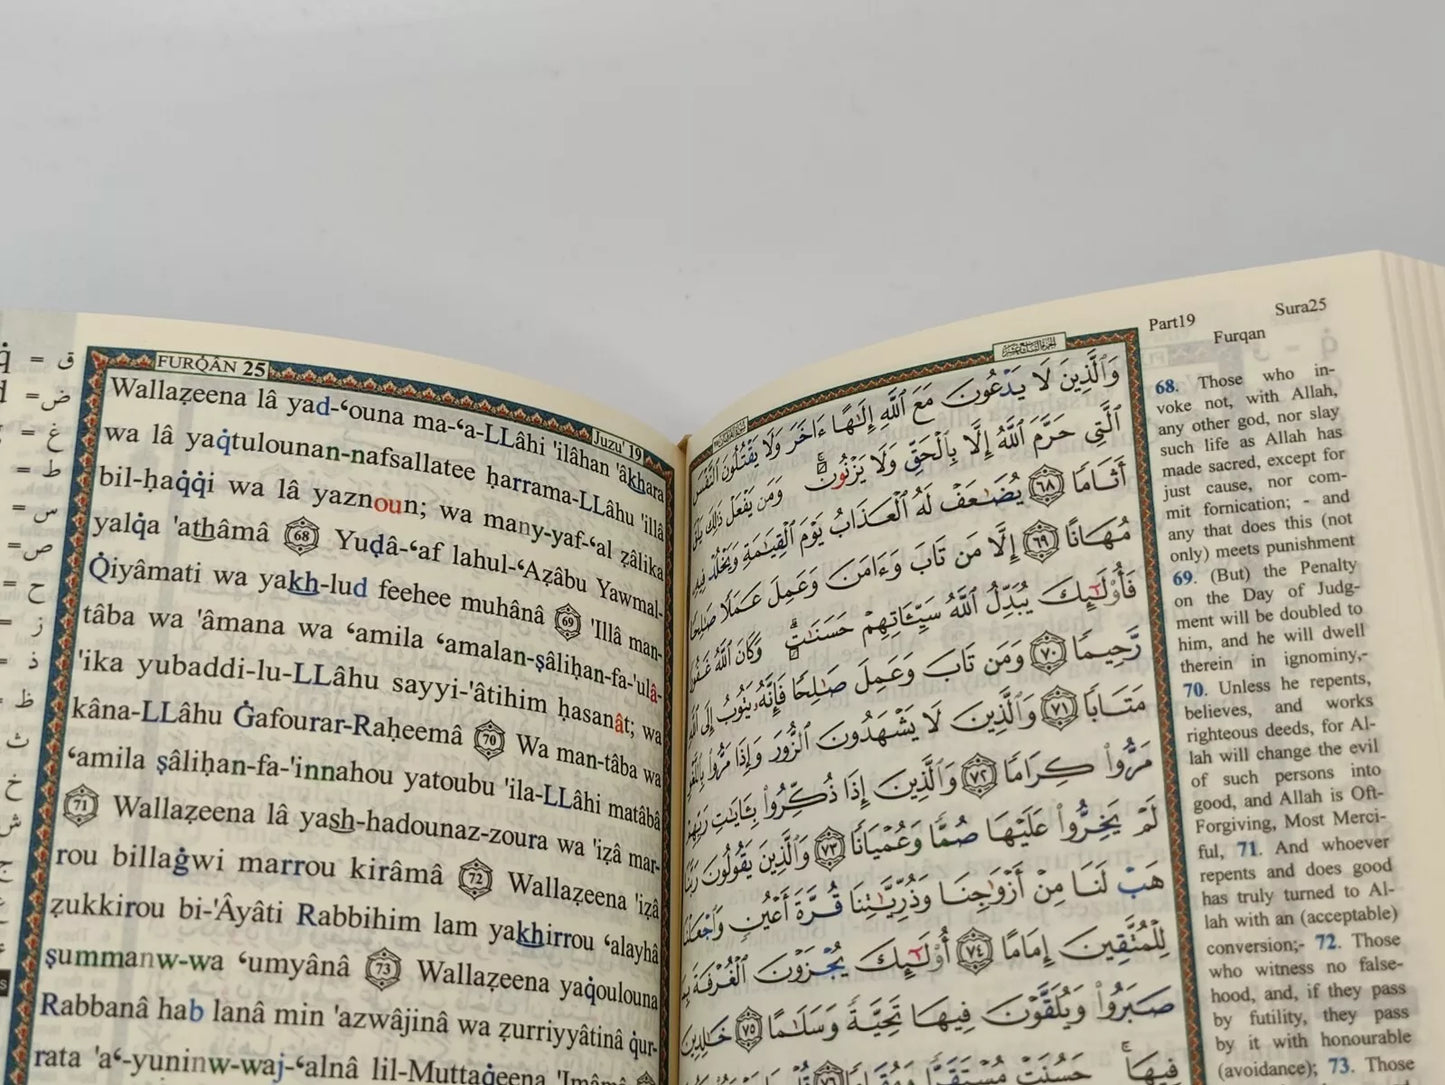 FURQÂN 25
Juzu' 19
Wallaẓeena lâ yad-‘ouna ma-‘a-LLâhi 'ilâhan 'âkhara
wa lâ yaq̇tulounan-nafsallatee ḥarrama-LLâhu 'illâ
bil-ḥaq̇q̇i wa lâ yaznoun; wa many-yaf-‘al ẓâlika
yalq̇a 'athâmâ 68 Yuḍâ-‘af lahul-‘Aẓâbu Yawmal-
Q̇iyâmati wa yakh-lud feehee muhânâ 69 'Illâ man-
tâba wa 'âmana wa ‘amila ‘amalan-ṣâliḥan-fa-'ulâ-
'ika yubaddi-lu-LLâhu sayyi-'âtihim ḥasanât; wa
kâna-LLâhu Ġafourar-Raḥeemâ 70 Wa man-tâba wa
‘amila ṣâliḥan-fa-'innahou yatoubu 'ila-LLâhi matâbâ
71 Wallaẓeena lâ yash-hadounaz-zoura wa 'iẓâ mar-
rou billaġwi marrou kirâmâ 72 Wallaẓeena 'iẓâ
ẓukkirou bi-'Âyâti Rabbihim lam yakhirrou ‘alayhâ
ṣummanw-wa ‘umyânâ 73 Wallaẓeena yaq̇oulouna
Rabbanâ hab lanâ min 'azwâjinâ wa ẓurriyyâtinâ q̇ur-
rata 'a‘-yuninw-waj-‘alnâ lil-Muttaq̇eena 'Imâmâ
q̇ = ق
= ض
= غ
= ط
= س
= ص
= ح
= ز
= ذ
= ظ
ث
خ
ش
وَٱلَّذِينَ لَا يَدْعُونَ مَعَ ٱللَّهِ إِلَٰهًا ءَاخَرَ وَلَا يَقْتُلُونَ ٱلنَّفْسَ
ٱلَّتِي حَرَّمَ ٱللَّهُ إِلَّا بِٱلْحَقِّ وَلَا يَزْنُونَ ۚ وَمَن يَفْعَلْ ذَٰلِكَ يَلْقَ
أَثَامًا ٦٨ يُضَٰعَفْ لَهُ ٱلْعَذَابُ يَوْمَ ٱلْقِيَٰمَةِ وَيَخْلُدْ فِيهِۦ
مُهَانًا ٦٩ إِلَّا مَن تَابَ وَءَامَنَ وَعَمِلَ عَمَلًا صَٰلِحًا
فَأُو۟لَٰٓئِكَ يُبَدِّلُ ٱللَّهُ سَيِّـَٔاتِهِمْ حَسَنَٰتٍ ۗ وَكَانَ ٱللَّهُ غَفُورًا
رَّحِيمًا ٧٠ وَمَن تَابَ وَعَمِلَ صَٰلِحًا فَإِنَّهُۥ يَتُوبُ إِلَى ٱللَّهِ
مَتَابًا ٧١ وَٱلَّذِينَ لَا يَشْهَدُونَ ٱلزُّورَ وَإِذَا مَرُّوا۟ بِٱللَّغْوِ
مَرُّوا۟ كِرَامًا ٧٢ وَٱلَّذِينَ إِذَا ذُكِّرُوا۟ بِـَٔايَٰتِ رَبِّهِمْ
لَمْ يَخِرُّوا۟ عَلَيْهَا صُمًّا وَعُمْيَانًا ٧٣ وَٱلَّذِينَ يَقُولُونَ رَبَّنَا
هَبْ لَنَا مِنْ أَزْوَٰجِنَا وَذُرِّيَّٰتِنَا قُرَّةَ أَعْيُنٍ وَٱجْعَلْنَا
لِلْمُتَّقِينَ إِمَامًا ٧٤ أُو۟لَٰٓئِكَ يُجْزَوْنَ ٱلْغُرْفَةَ بِمَا
صَبَرُوا۟ وَيُلَقَّوْنَ فِيهَا تَحِيَّةً وَسَلَٰمًا ٧٥ خَٰلِدِينَ
فِيهَا ۚ حَسُنَتْ مُسْتَقَرًّا وَمُقَامًا ٧٦
Part19 Sura25
Furqan
68. Those who in-
voke not, with Allah,
any other god, nor slay
such life as Allah has
made sacred, except for
just cause, nor com-
mit fornication; - and
any that does this (not
only) meets punishment
69. (But) the Penalty
on the Day of Judg-
ment will be doubled to
him, and he will dwell
therein in ignominy,-
70. Unless he repents,
believes, and works
righteous deeds, for Al-
lah will change the evil
of such persons into
good, and Allah is Oft-
Forgiving, Most Merci-
ful, 71. And whoever
repents and does good
has truly turned to Al-
lah with an (acceptable)
conversion;- 72. Those
who witness no false-
hood, and, if they pass
by futility, they pass
by it with honourable
(avoidance); 73. Those